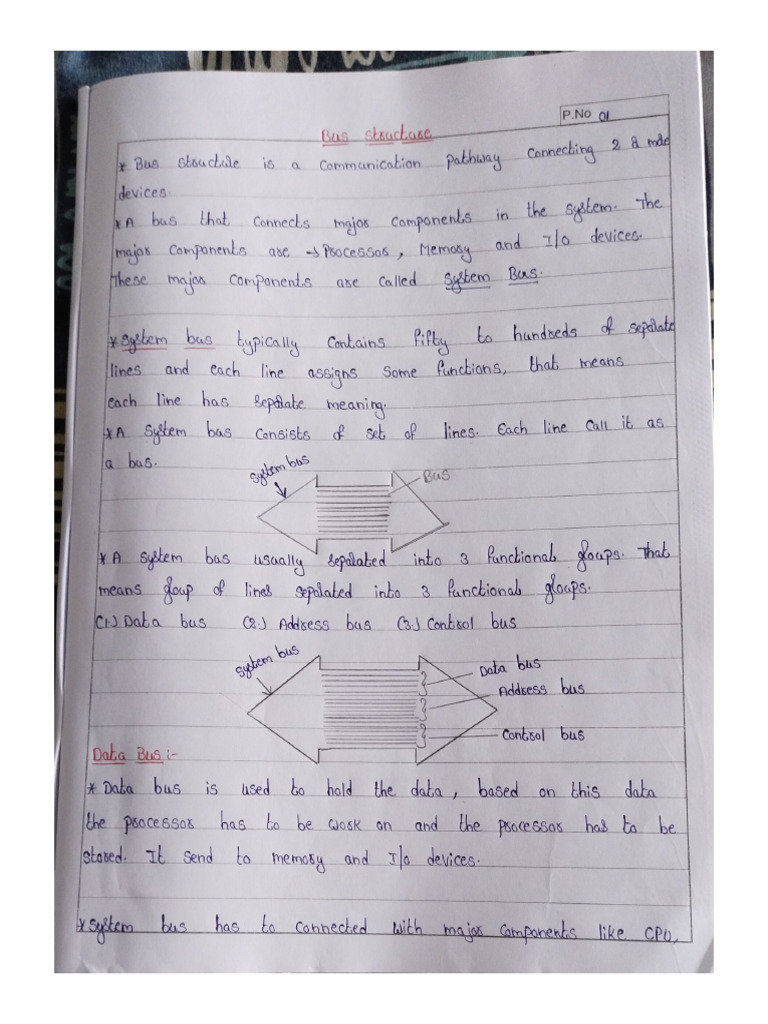 P.No 01
Bus structure
* Bus structure is a communication pathway connecting 2 & more
devices.
* A bus that connects major components in the system. The
major components are → Processor, Memory and I/o devices.
These major components are called System Bus.
* System bus typically contains fifty to hundreds of separate
lines and each line assigns some functions, that means
each line has separate meaning.
* A system bus consists of set of lines. Each line call it as
a bus.
System bus
Bus
* A system bus usually separated into 3 functional groups. That
means group of lines separated into 3 functional groups.
(1.) Data bus (2.) Address bus (3.) Control bus
System bus
Data bus
Address bus
Control bus
Data Bus :-
* Data bus is used to hold the data, based on this data
the processor has to be work on and the processor has to be
stored. It send to memory and I/o devices.
* System bus has to connected with major components like CPU,